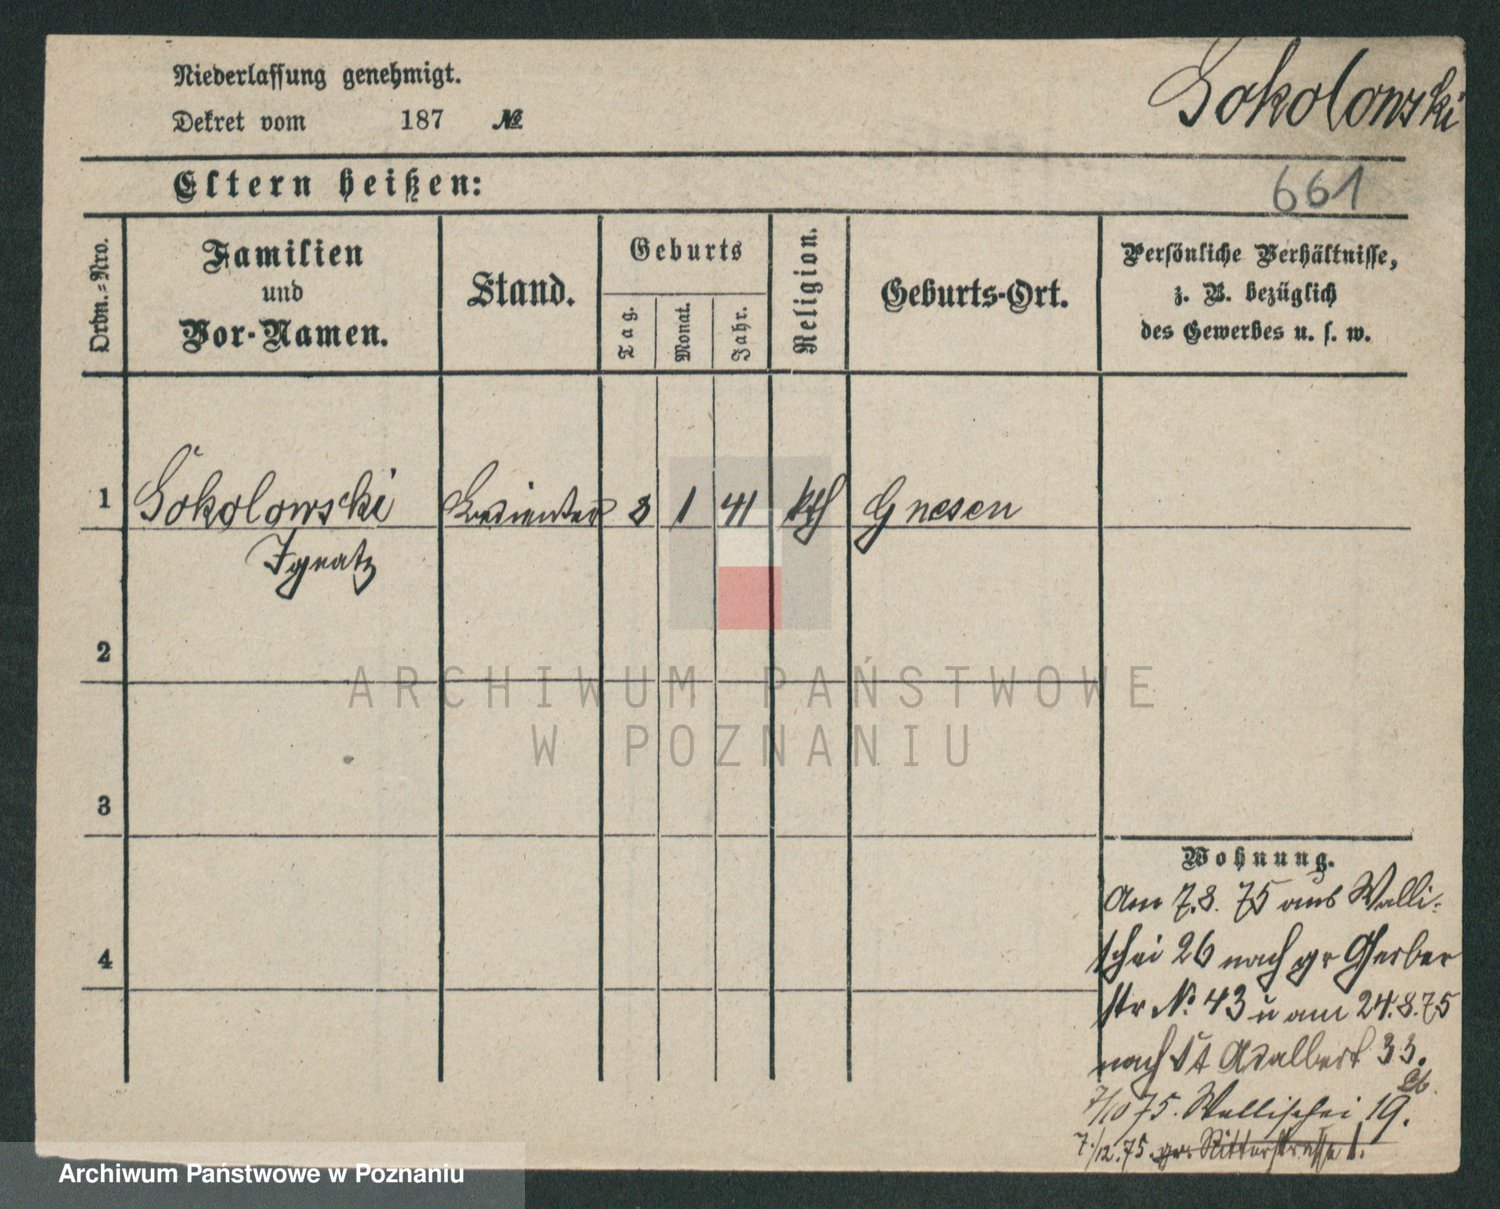 Niederlassung genehmigt.
Dekret vom 187 №
Sokolowski
Eltern heißen:
661
Ordn.-Nro.
Familien
und
Vor-Namen.
Stand.
Geburts
Tag.
Monat.
Jahr.
Religion.
Geburts-Ort.
Persönliche Verhältnisse,
z. B. bezüglich
des Gewerbes u. s. w.
1 Sokolowski 8 1 41 kth Gnesen
Ignatz
2
3
4
ARCHIWUM PAŃSTWOWE
W POZNANIU
Wohnung.
Am 7.8. 75 aus Walli-
schei 26 nach gr Gerber
str No. 43 u am 24.8.75
nach St Adalbert 33.
7/10 75. Wallischei 19.
7./12.75. gr. Ritterstrasse 1.
Archiwum Państwowe w Poznaniu